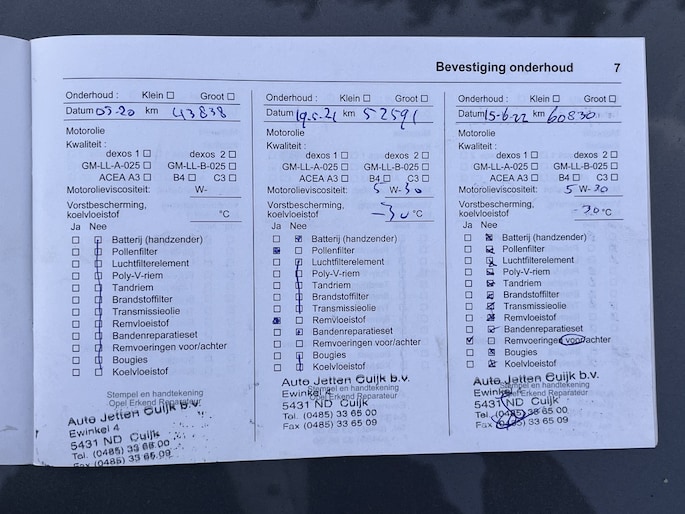 Bevestiging onderhoud 7
Onderhoud : Klein Groot
Datum 05-20 km 43838
Motorolie
Kwaliteit :
dexos 1 dexos 2
GM-LL-A-025 GM-LL-B-025
ACEA A3 B4 C3
Motorolieviscositeit: W-
Vorstbescherming,
koelvloeistof °C
Ja Nee
Batterij (handzender)
Pollenfilter
Luchtfilterelement
Poly-V-riem
Tandriem
Brandstoffilter
Transmissieolie
Remvloeistof
Bandenreparatieset
Remvoeringen voor/achter
Bougies
Koelvloeistof
Stempel en handtekening
Opel Erkend Reparateur
Auto Jetten Cuijk b.v.
Ewinkel 4
5431 ND Cuijk
Tel. (0485) 33 65 00
Fax (0485) 33 65 09
Onderhoud : Klein Groot
Datum 19-5-21 km 52591
Motorolie
Kwaliteit :
dexos 1 dexos 2
GM-LL-A-025 GM-LL-B-025
ACEA A3 B4 C3
Motorolieviscositeit: 5 W-30
Vorstbescherming,
koelvloeistof -30 °C
Ja Nee
Batterij (handzender)
Pollenfilter
Luchtfilterelement
Poly-V-riem
Tandriem
Brandstoffilter
Transmissieolie
Remvloeistof
Bandenreparatieset
Remvoeringen voor/achter
Bougies
Koelvloeistof
Stempel en handtekening
Opel Erkend Reparateur
Auto Jetten Cuijk b.v.
Ewinkel 4
5431 ND Cuijk
Tel. (0485) 33 65 00
Fax (0485) 33 65 09
Onderhoud : Klein Groot
Datum 15-6-22 km 60830
Motorolie
Kwaliteit :
dexos 1 dexos 2
GM-LL-A-025 GM-LL-B-025
ACEA A3 B4 C3
Motorolieviscositeit: 5 W-30
Vorstbescherming,
koelvloeistof -30 °C
Ja Nee
Batterij (handzender)
Pollenfilter
Luchtfilterelement
Poly-V-riem
Tandriem
Brandstoffilter
Transmissieolie
Remvloeistof
Bandenreparatieset
Remvoeringen voor/achter
Bougies
Koelvloeistof
Stempel en handtekening
Opel Erkend Reparateur
Auto Jetten Cuijk b.v.
Ewinkel 4
5431 ND Cuijk
Tel. (0485) 33 65 00
Fax (0485) 33 65 09